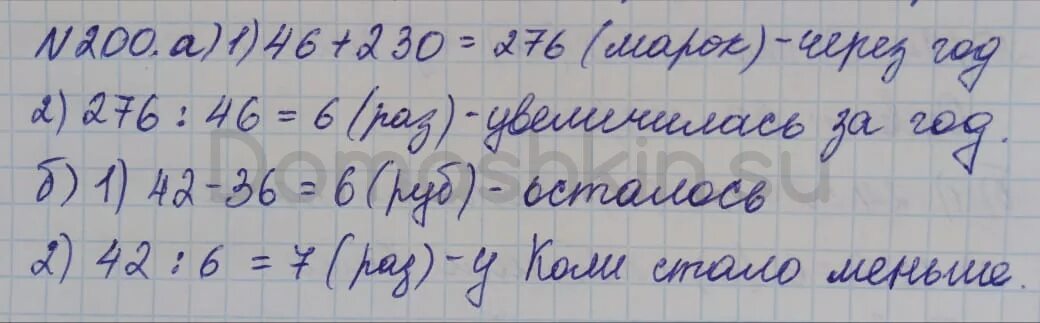 N200. а) 1) 46 + 230 = 276 (марок) - через год
2) 276 : 46 = 6 (раз) - увеличилась за год.
б) 1) 42 - 36 = 6 (руб) - осталось
2) 42 : 6 = 7 (раз) - у Коли стало меньше.
Domoshkin.su